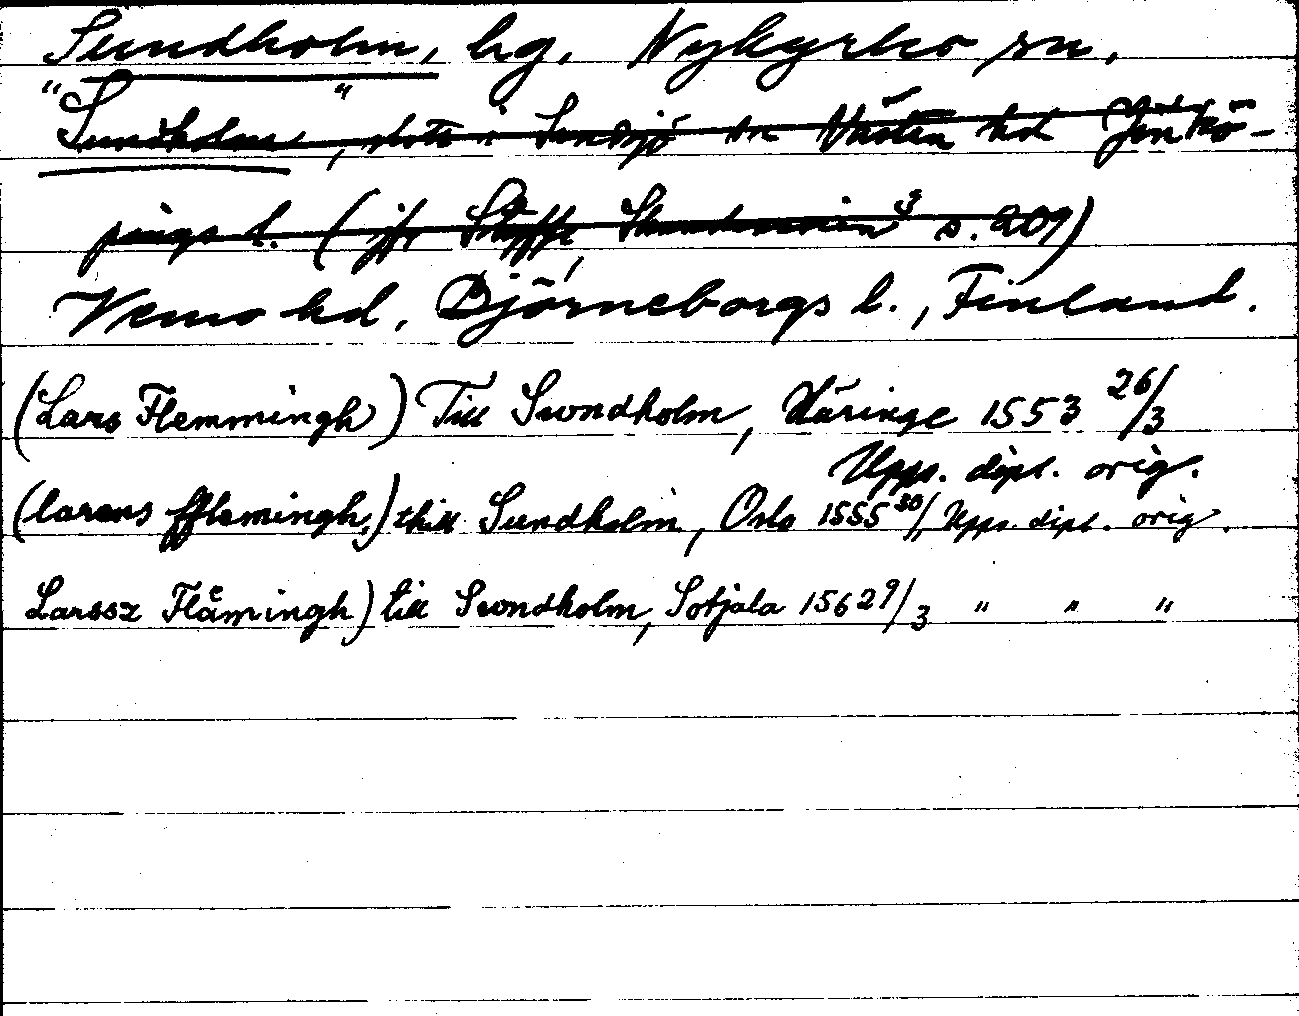 Sundholm, hg, Nykyrko sn,
"Sundholm", slott i Sundsjö sn Västra hd Jönkö-
pings l. (jfr Styffe, Skandinavien³ s. 209)
Vemo hd, Björneborgs l., Finland.
(Lars Flemmingh) Till Swndholm, Häringe 1553 26/3
Upps. dipl. orig.
(larens fflemingh) thill Sundholm, Oslo 1555 30/1 Upps. dipl. orig.
Larssz Flåmingh) till Swndholm, Sotjala 1562 9/3 " " "